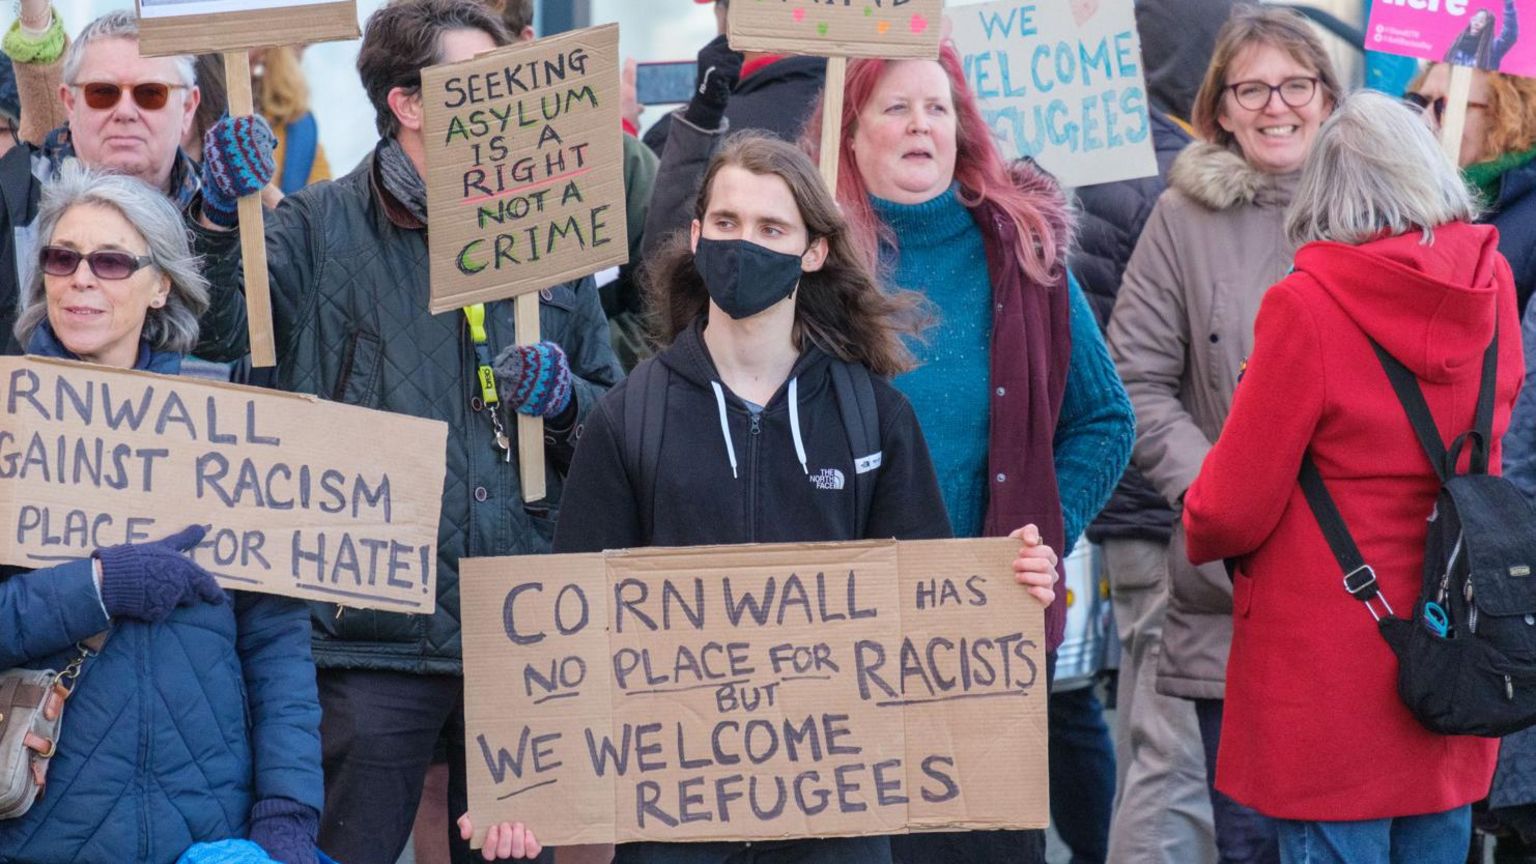 SEEKING
ASYLUM
IS A
RIGHT
NOT A
CRIME
WE
WELCOME
REFUGEES
here
RNWALL
GAINST RACISM
PLACE FOR HATE!
THE
NORTH
FACE
CORNWALL HAS
NO PLACE FOR RACISTS
BUT
WE WELCOME
REFUGEES